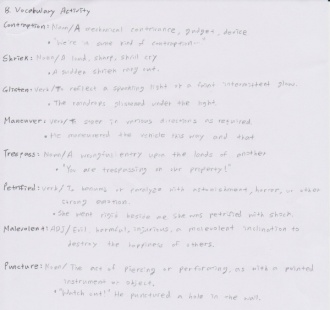 B. Vocabulary Activity
Contraption: Noun/A mechanical contrivance, gadget, device
• "We're in some kind of contraption."
Shriek: Noun/A loud, sharp, shrill cry
• A sudden shriek rang out.
Glisten: Verb/To reflect a sparkling light or a faint intermittent glow.
• The raindrops glistened under the light.
Maneuver: Verb/To steer in various directions as required
• He maneuvered the vehicle this way and that
Trespass: Noun/A wrongful entry upon the lands of another
• "You are trespassing on our property!"
Petrified: Verb/To benumb or paralyze with astonishment, horror, or other
strong emotion.
• She went rigid because she was petrified with shock.
Malevolent: ADJ/Evil, harmful, injurious, a malevolent inclination to
destroy the happiness of others.
Puncture: Noun/The act of piercing or perforating, as with a pointed
instrument or object.
• "Watch out!" He punctured a hole in the wall.